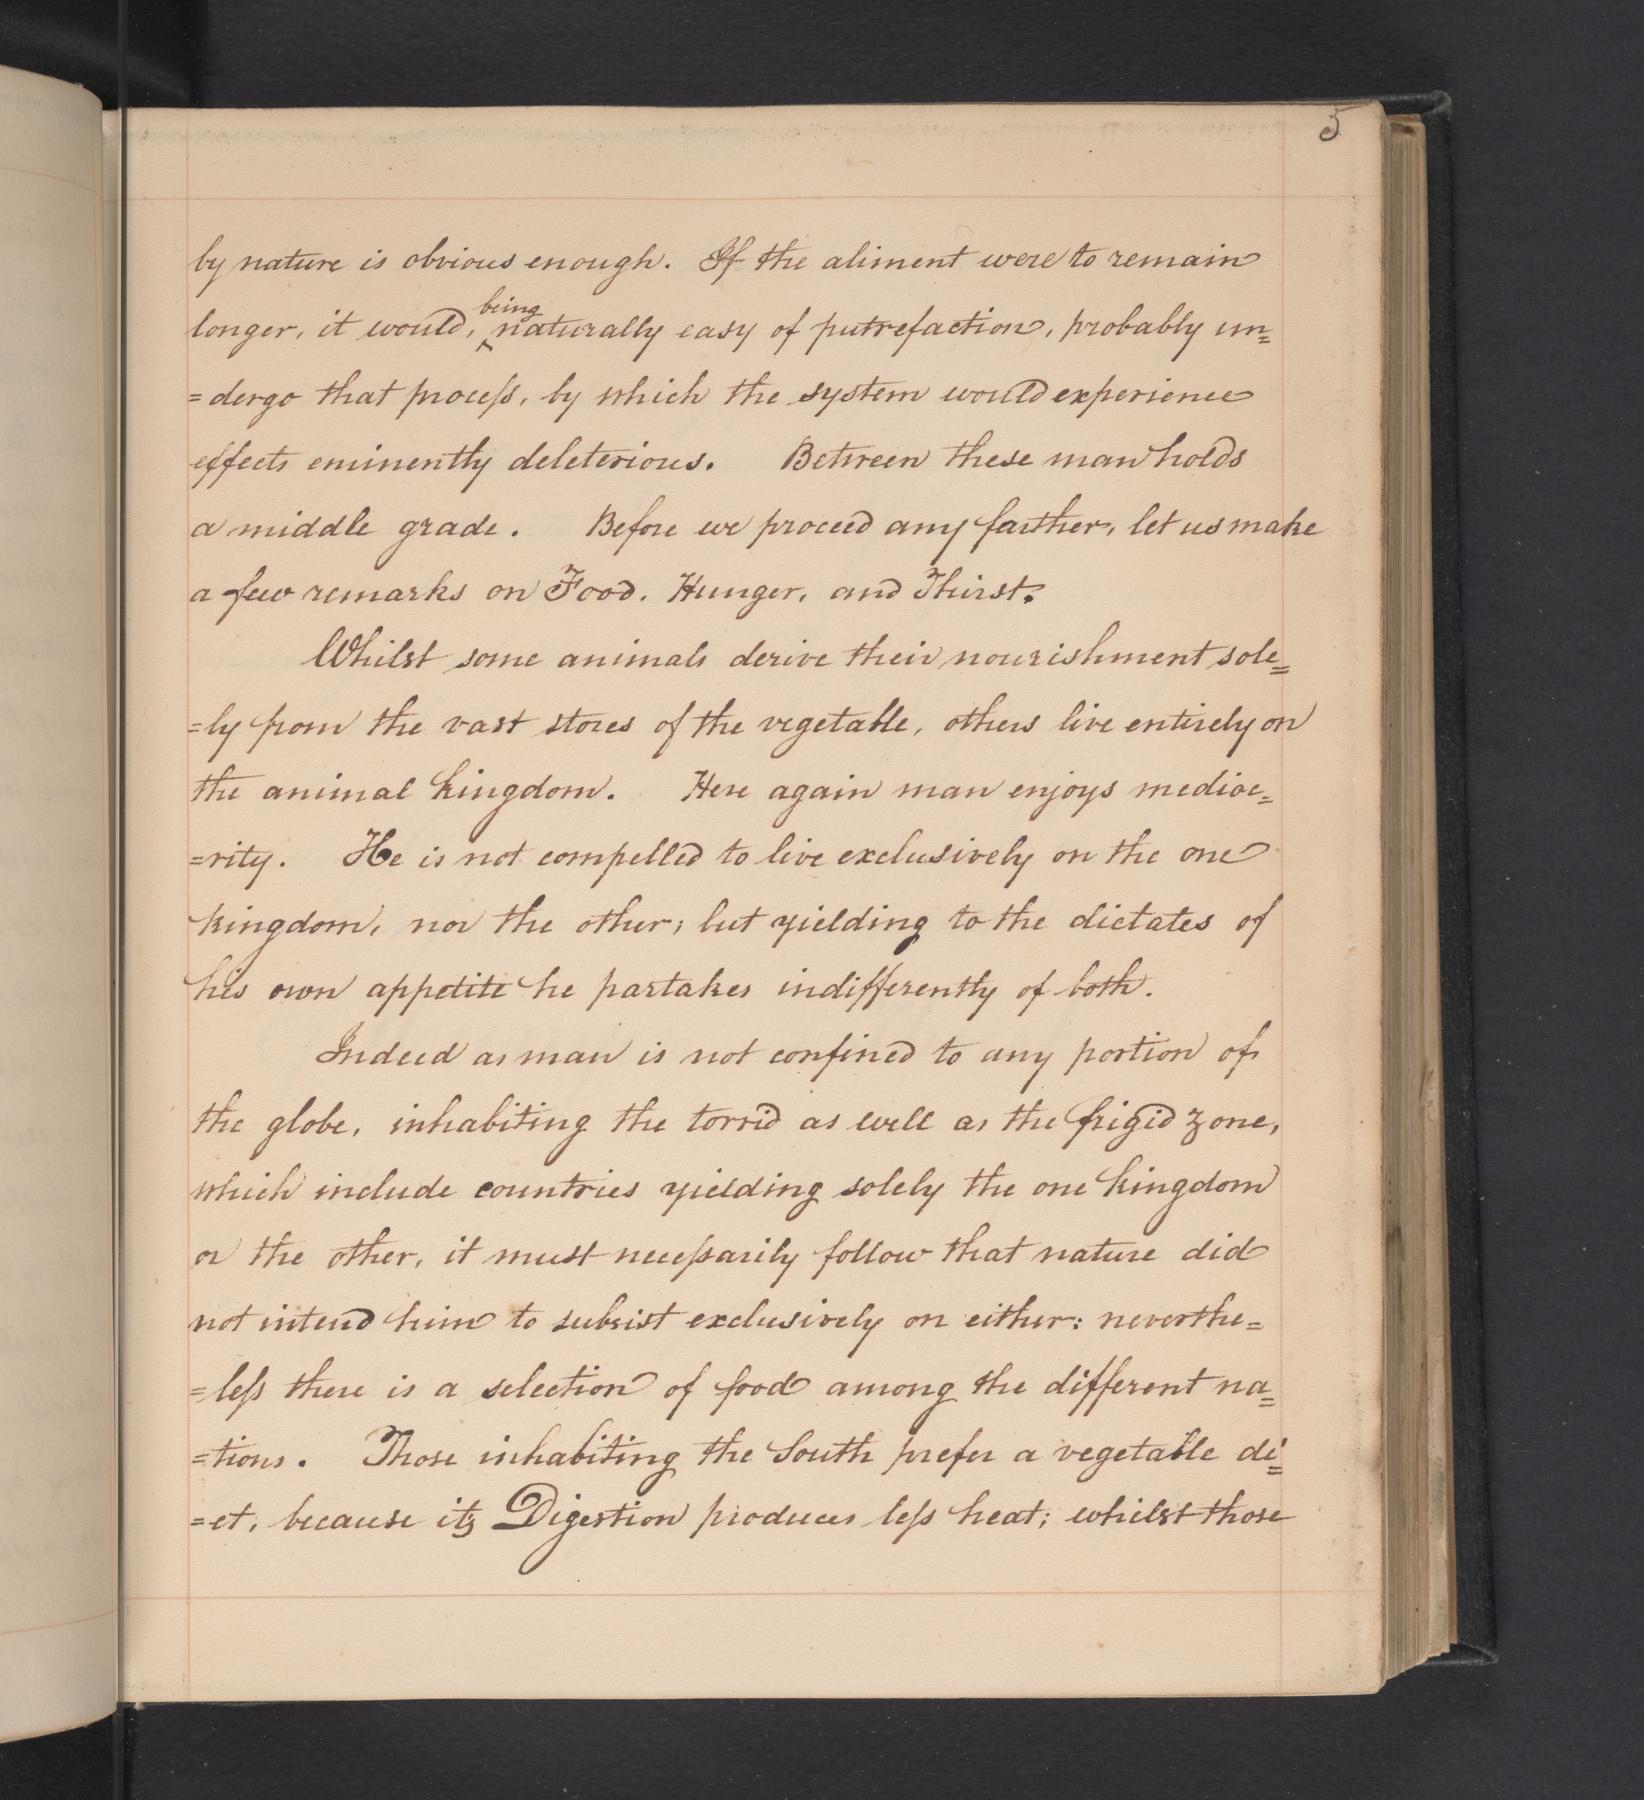 5
by nature is obvious enough. If the aliment were to remain
being
longer, it would, naturally easy of putrefaction, probably un=
=dergo that proceſs, by which the system would experience
effects eminently deleterious. Between these man holds
a middle grade. Before we proceed any farther, let us make
a few remarks on Food, Hunger, and Thirst.
Whilst some animals derive their nourishment sole=
=ly from the vast stores of the vegetable, others live entirely on
the animal kingdom. Here again man enjoys medioc=
=rity. He is not compelled to live exclusively on the one
kingdom, nor the other; but yielding to the dictates of
his own appetite he partakes indifferently of both.
Indeed as man is not confined to any portion of
the globe, inhabiting the torrid as well as the frigid zone,
which include countries yielding solely the one kingdom
or the other, it must neceſsarily follow that nature did
not intend him to subsist exclusively on either: neverthe=
=leſs there is a selection of food among the different na=
=tions. Those inhabiting the South prefer a vegetable di=
=et, because its Digestion produces leſs heat; whilst those